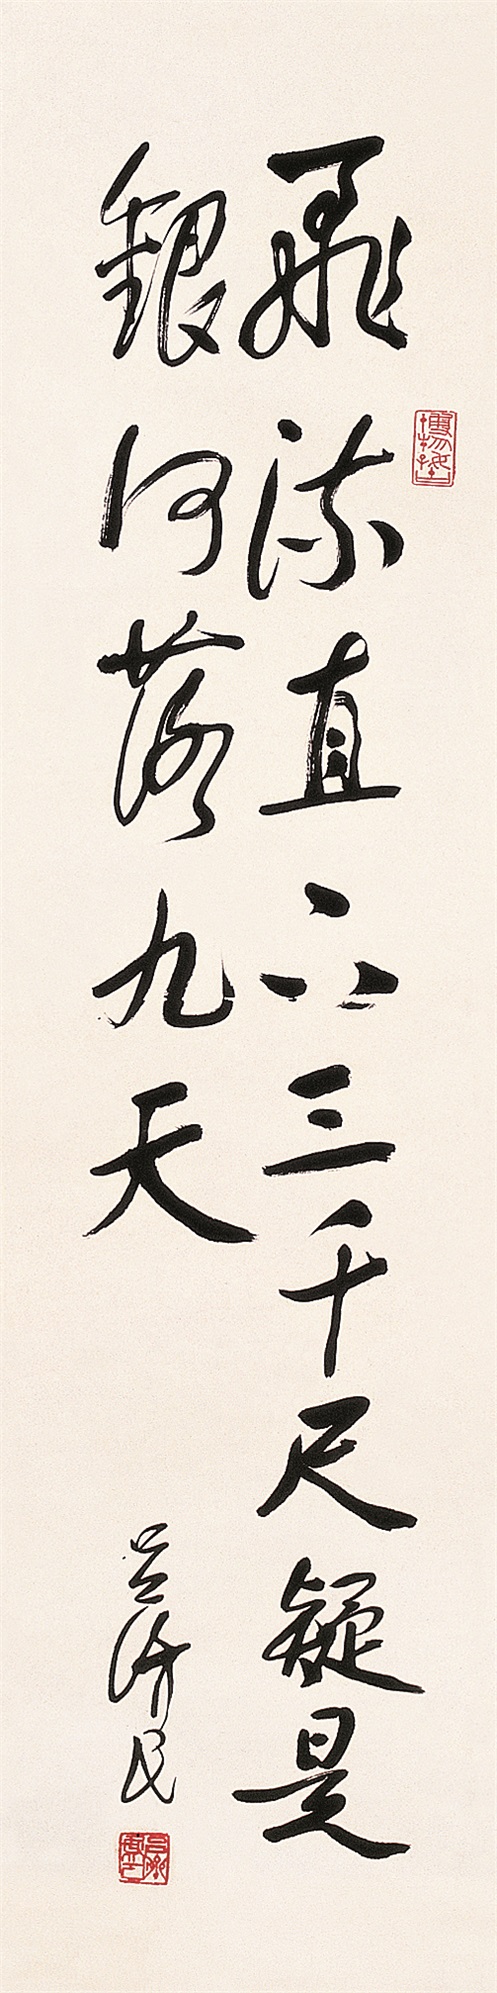 飛流直下三千尺疑是
銀河落九天
吕济民